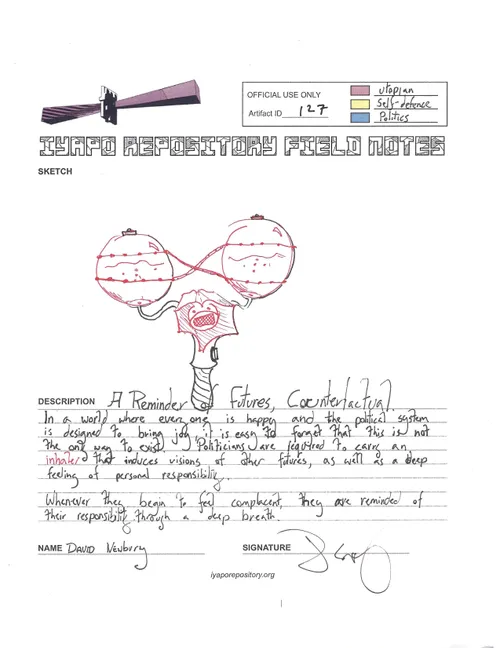 OFFICIAL USE ONLY
Artifact ID 127
utopian
Self-defence
Politics
IYAPO REPOSITORY FIELD NOTES
SKETCH
DESCRIPTION A Reminder of Futures, Counterfactual
In a world where everyone is happy and the political system
is designed to bring joy, it is easy to forget that this is not
the only way to exist. Politicians are required to carry an
inhaler that induces visions of other futures, as well as a deep
feeling of personal responsibility.
Whenever they begin to feel complacent, they are reminded of
their responsibility through a deep breath.
NAME David Newbury
SIGNATURE
iyaporepository.org